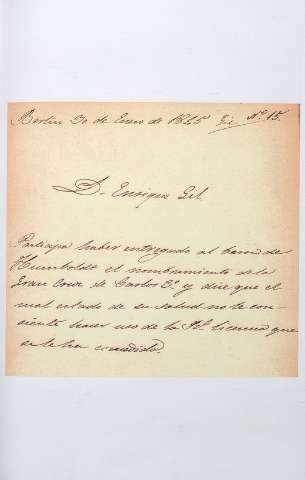 Berlin 30 de Enero de 1845 Gil Nº 15.
D. Enrique Gil.
Participa haber entregado al baron de
Humboldt el nombramiento de la
Gran Cruz de Carlos 3º y dice que el
mal estado de su salud no le con-
siente hacer uso de la Rl. licencia que
se le ha concedido.